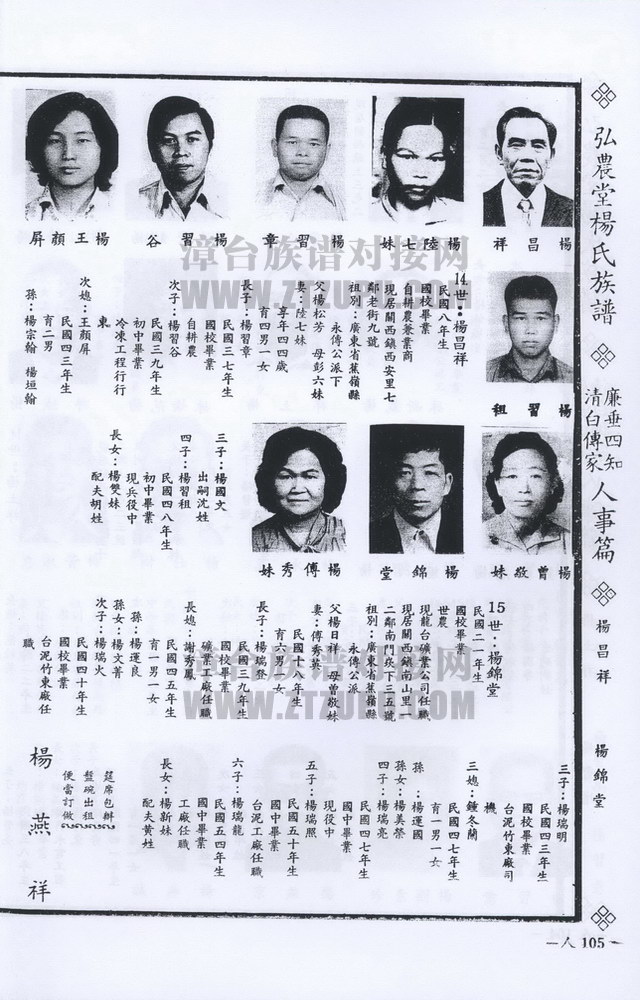 弘農堂楊氏族譜
廉垂四知
清白傳家
人事篇
楊昌祥
楊錦堂
楊昌祥
楊陸七妹
楊習章
楊習谷
楊王顏屏
楊習祖
14世：楊昌祥
民國八年生
國校畢業
自耕農兼業商
現居關西鎮西安里七
鄰老街九號
祖別：廣東省蕉嶺縣
永傳公派下
父楊松芳　母彭六妹
妻：陸七妹
享年四四歲
育四男一女
長子：楊習章
民國三七年生
國校畢業
自耕農
次子：楊習谷
民國三九年生
初中畢業
冷凍工程行行
東
次媳：王顏屏
民國四三年生
育二男
孫：楊宗翰　楊垣翰
三子：楊國文
出嗣沈姓
四子：楊習祖
民國四八年生
初中畢業
現兵役中
長女：楊雙妹
配夫胡姓
楊曾敬妹
楊錦堂
楊傅秀妹
15世：楊錦堂
民國二一年生
國校畢業
世農
現龍台礦業公司任職
現居關西鎮南山里一
二鄰南門崁下三五號
祖別：廣東省蕉嶺縣
永傳公派
父楊日祥　母曾敬妹
妻：傅秀英
民國十八年生
育六男一女
長子：楊瑞登
民國三九年生
國校畢業
礦業工廠任職
長媳：謝秀鳳
民國四五年生
育一男一女
孫：楊運良
孫女：楊文菁
次子：楊瑞火
民國四十年生
國校畢業
台泥竹東廠任
職
三子：楊瑞明
民國四三年生
國校畢業
台泥竹東廠司
機
三媳：鍾冬蘭
民國四七年生
育一男一女
孫：楊運國
孫女：楊美榮
四子：楊瑞亮
民國四七年生
國中畢業
現役中
五子：楊瑞照
民國五十年生
國中畢業
台泥工廠任職
六子：楊瑞龍
民國五四年生
國中畢業
工廠任職
長女：楊新妹
配夫黃姓
筵席包辦
盤碗出租
便當訂做
楊燕祥
一人105
漳台族谱对接网
WWW.ZTZUPU.COM
漳台族谱对接网
WWW.ZTZUPU.COM